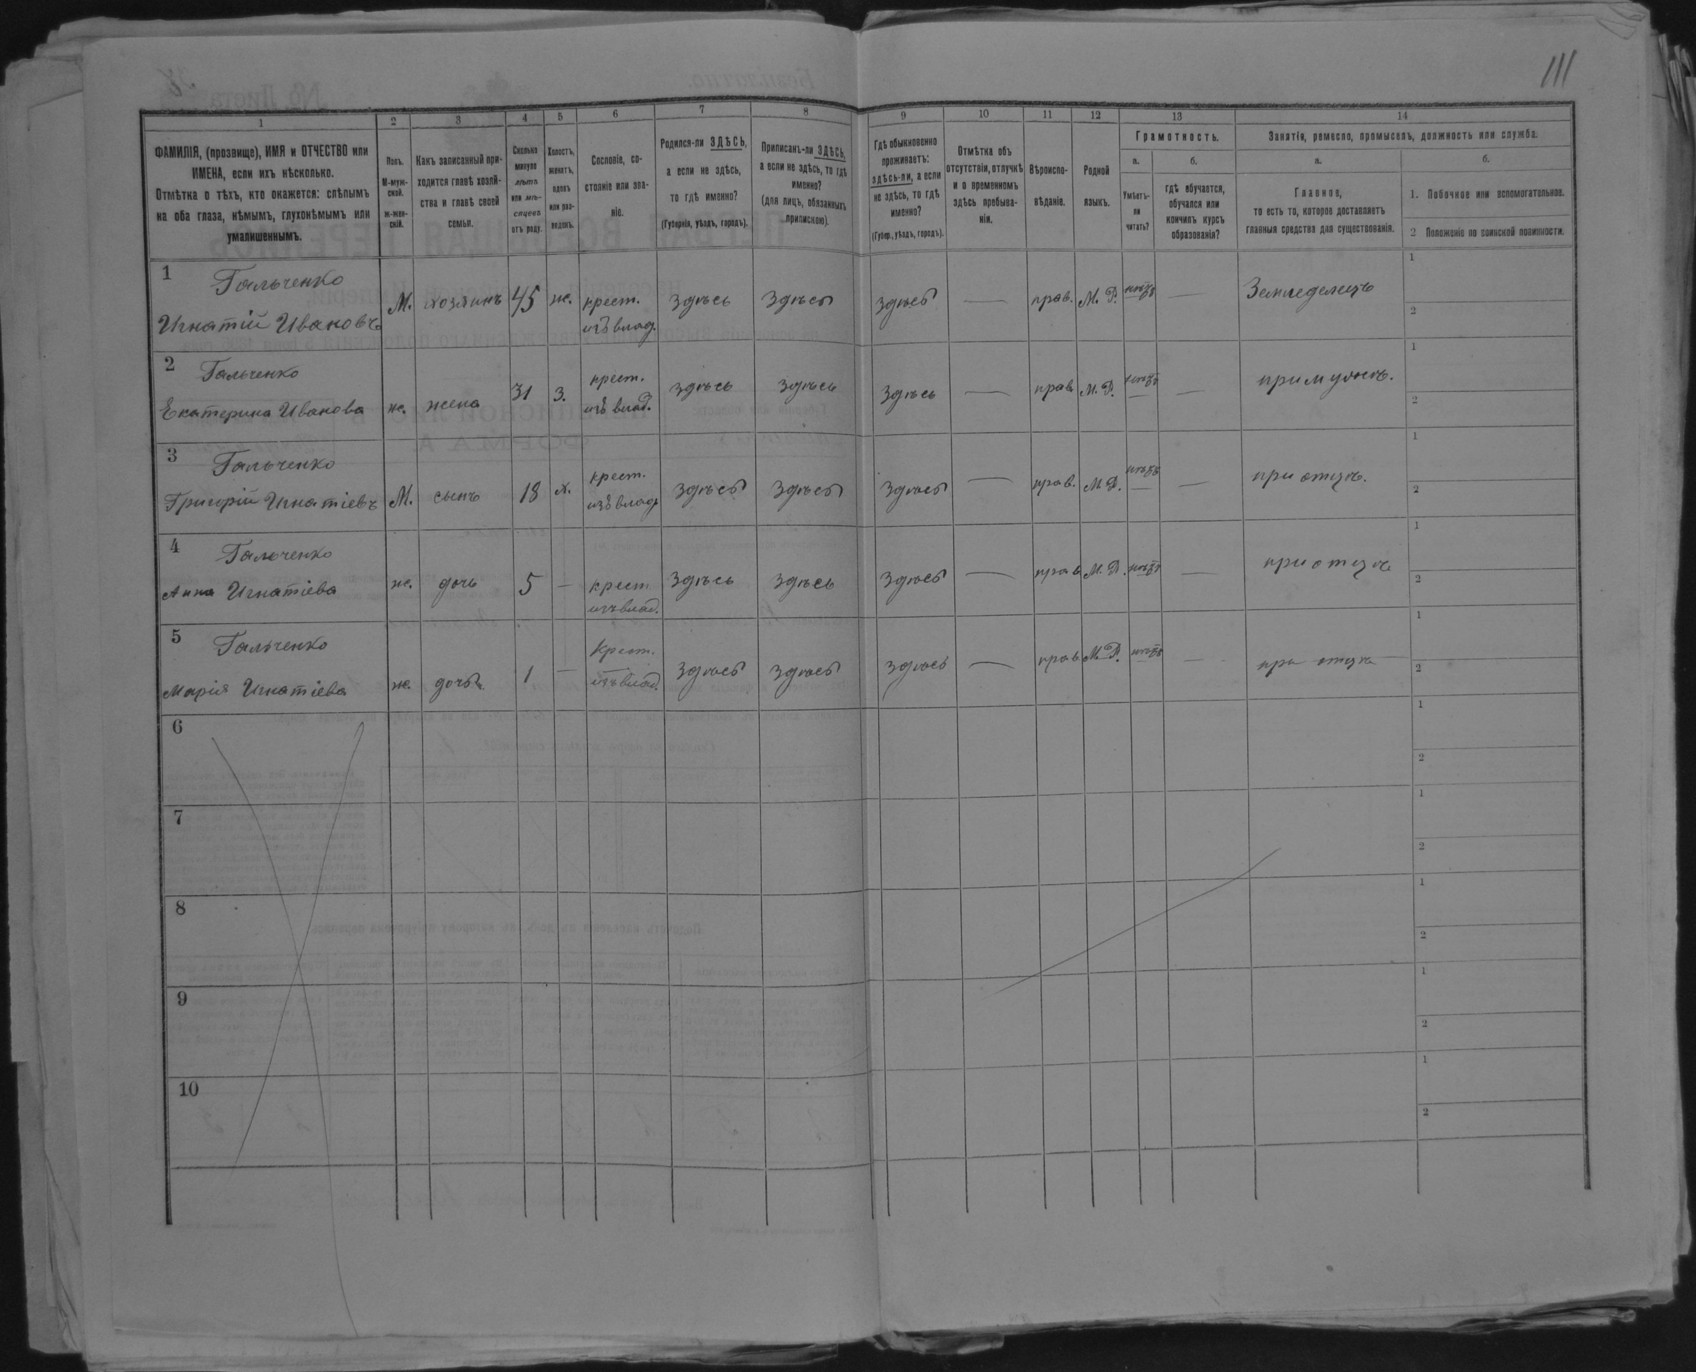 111
1
2
3
4
5
6
7
8
9
10
11
12
13
14
ФАМИЛІЯ, (прозвище), ИМЯ и ОТЧЕСТВО или
ИМЕНА, если ихъ нѣсколько.
Отмѣтка о тѣхъ, кто окажется: слѣпымъ
на оба глаза, нѣмымъ, глухонѣмымъ или
умалишеннымъ.
Полъ.
М-муж-
ской.
Ж-жен-
скій.
Какъ записанный при-
ходится главѣ хозяй-
ства и главѣ своей
семьи.
Сколько
минуло
лѣтъ
или мѣ-
сяцевъ
отъ роду.
Холостъ,
женатъ,
вдовъ
или раз-
веденъ.
Сословіе, со-
стояніе или зва-
ніе.
Родился-ли ЗДѢСЬ,
а если не здѣсь,
то гдѣ именно?
(Губернія, уѣздъ, городъ).
Приписанъ-ли ЗДѢСЬ,
а если не здѣсь, то гдѣ
именно?
(для лицъ, обязанныхъ
припискою).
Гдѣ обыкновенно
проживаетъ:
здѣсь-ли, а если
не здѣсь, то гдѣ
именно?
(Губер., уѣздъ, городъ).
Отмѣтка объ
отсутствіи, отлучкѣ
и о временномъ
здѣсь пребыва-
ніи.
Вѣроиспо-
вѣданіе.
Родной
языкъ.
Грамотность.
а.
Умѣетъ-
ли
читать?
б.
гдѣ обучается,
обучался или
кончилъ курсъ
образованія?
Занятіе, ремесло, промыселъ, должность или служба.
а.
Главное,
то есть то, которое доставляетъ
главныя средства для существованія.
б.
1. Побочное или вспомогательное.
2 Положеніе по воинской повинности.
1 Гальченко
Игнатій Ивановъ М. хозяинъ 45 ж. крест. изъ влад. здѣсь здѣсь здѣсь — прав. М. Р. нѣтъ — Земледелецъ 1 2
2 Гальченко
Екатерина Иванова ж. жена 31 з. крест. изъ влад. здѣсь здѣсь здѣсь — прав. М. Р. нѣтъ — при мужѣ. 1 2
3 Гальченко
Григорій Игнатіевъ М. сынъ 18 х. крест. изъ влад. здѣсь здѣсь здѣсь — прав. М. Р. нѣтъ — при отцѣ. 1 2
4 Гальченко
Анна Игнатіева ж. дочь 5 — крест. изъ влад. здѣсь здѣсь здѣсь — прав. М. Р. нѣтъ — при отцѣ 1 2
5 Гальченко
Марія Игнатіева ж. дочь. 1 — крест. изъ влад. здѣсь здѣсь здѣсь — прав. М. Р. нѣтъ — при отцѣ 1 2
6 1 2
7 1 2
8 1 2
9 1 2
10 1 2